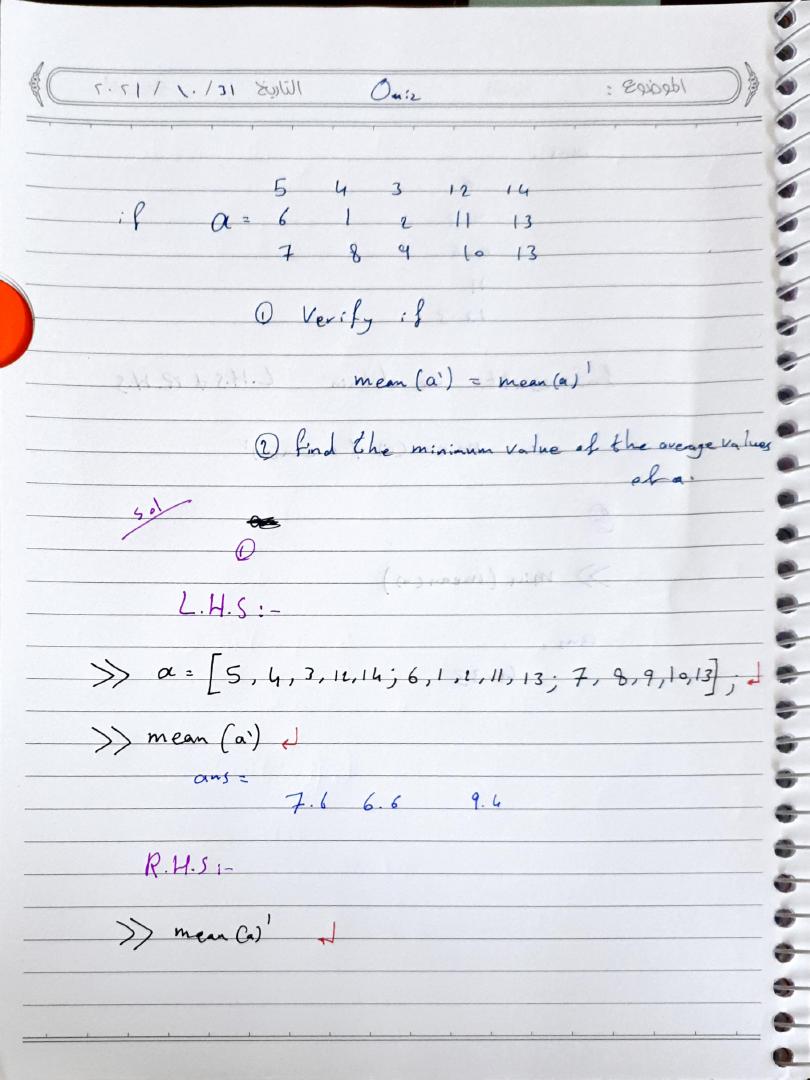 الموضوع : Quiz التاريخ ٣١ / ١٠ / ٢٠٢١
5 4 3 12 14
if a = 6 1 2 11 13
7 8 9 10 13
① Verify if
mean (a') = mean(a)'
② find the minimum value of the average values
of a.
sol
①
L.H.S :-
>> a = [5, 4, 3, 12, 14; 6, 1, 2, 11, 13; 7, 8, 9, 10, 13];
>> mean (a')
ans =
7.6 6.6 9.4
R.H.S :-
>> mean (a)'